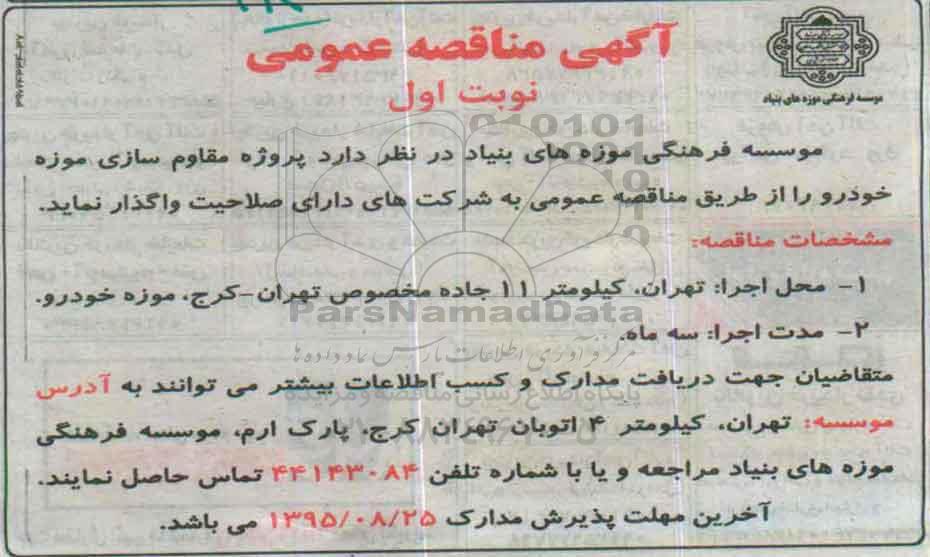 آگهی مناقصه عمومی
نوبت اول
موسسه فرهنگی موزه های بنیاد
موسسه فرهنگی موزه های بنیاد در نظر دارد پروژه مقاوم سازی موزه
خودرو را از طریق مناقصه عمومی به شرکت های دارای صلاحیت واگذار نماید.
مشخصات مناقصه:
۱- محل اجرا: تهران، کیلومتر ۱۱ جاده مخصوص تهران-کرج، موزه خودرو.
ParsNamadData
۲- مدت اجرا: سه ماه.
مرکز فرآوری اطلاعات پارس نماد داده ها
متقاضیان جهت دریافت مدارک و کسب اطلاعات بیشتر می توانند به آدرس
پایگاه اطلاع رسانی مناقصه و مزایده
موسسه: تهران، کیلومتر ۴ اتوبان تهران کرج، پارک ارم، موسسه فرهنگی
موزه های بنیاد مراجعه و یا با شماره تلفن ۴۴۱۴۳۰۸۴ تماس حاصل نمایند.
آخرین مهلت پذیرش مدارک ۱۳۹۵/۰۸/۲۵ می باشد.